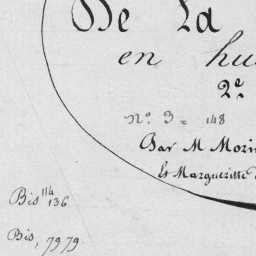 De La
en hu
2e
no. 3 = 148
Par M Mori
Et Margueritte
Bis 114 136
Bis, 7979